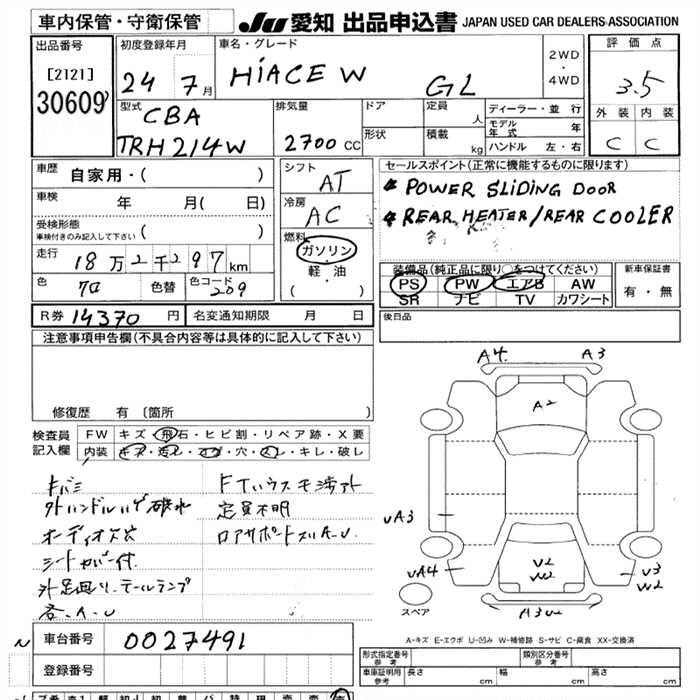 車内保管・守衛保管 JU 愛知 出品申込書 JAPAN USED CAR DEALERS ASSOCIATION
出品番号
[2121]
30609
初度登録年月
24 7月
車名・グレード
HIACE W GL
2WD
・
4WD
評価点
3.5
外装 内装
C C
型式
CBA
TRH214W
排気量
2700 CC
ドア
形状
定員 人
積載 kg
ディーラー・並行
モデル年式 年
ハンドル 左・右
車歴 自家用・( )
車検 年 月( 日)
受検形態
車検付きのみ記入して下さい ( )
走行 18万2千297km
色 クロ 色替 色コード 209
シフト
AT
冷房
AC
燃料
ガソリン
・
軽・油
( )
セールスポイント(正常に機能するものに限ります)
POWER SLIDING DOOR
REAR HEATER/REAR COOLER
装備品(純正品に限り○をつけてください)
PS PW エアB AW
SR ナビ TV カワシート
新車保証書
有・無
R券 14370円 名変通知期限 月 日
後日品
注意事項申告欄(不具合内容等は具体的に記入して下さい)
修復歴 有 〔箇所 〕
検査員記入欄
FW キズ・飛石・ヒビ割・リペア跡・X要
内装 キズ・汚レ・コゲ・穴・スレ・キレ・破レ
定員不明
オーディオ
シートカバー付
A4. A3
A2
UA3
UA4
U2
W2
U3
W2
A3U2
スペア
A-キズ E-エクボ U-凹み W-補修跡 S-サビ C-腐食 XX-交換済
車台番号 0027491
登録番号
形式指定番号
参考
類別区分番号
参考
車庫証明用
参考
長さ cm 幅 cm 高さ cm